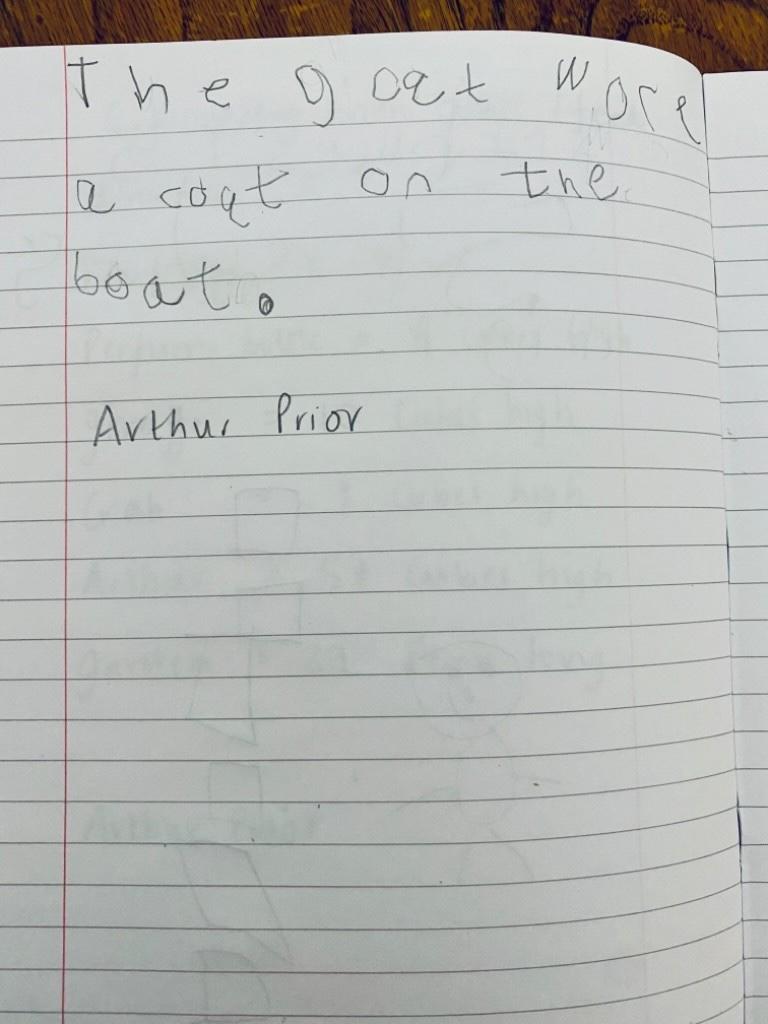 The goat wore
a coat on the
boat.
Arthur Prior